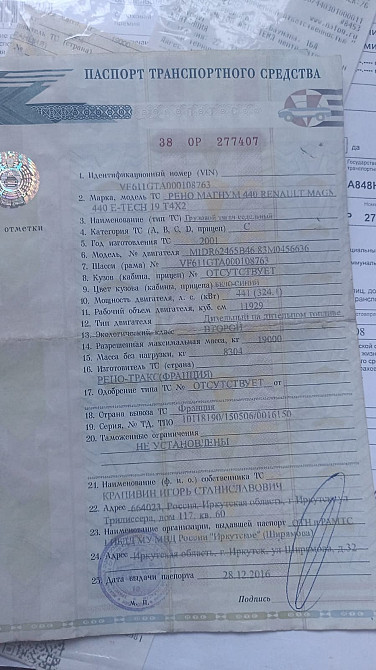 ПАСПОРТ ТРАНСПОРТНОГО СРЕДСТВА
38 ОР 277407
1. Идентификационный номер (VIN)
VF611GTA000108763
2. Марка, модель ТС РЕНО МАГНУМ 440 RENAULT MAGN
440 E-TECH 19 T4X2
3. Наименование (тип ТС) Грузовой тягач седельный
4. Категория ТС (А, В, С, D, прицеп) С
отметки
5. Год изготовления ТС 2001
6. Модель, № двигателя MIDR62465B46 83M0456636
7. Шасси (рама) № VF611GTA000108763
8. Кузов (кабина, прицеп) № ОТСУТСТВУЕТ
9. Цвет кузова (кабины, прицепа) бело-синий
10. Мощность двигателя, л. с. (кВт) 441 (324.4)
11. Рабочий объем двигателя, куб. см 11929
12. Тип двигателя Дизельный на дизельном топливе
13. Экологический класс ВТОРОЙ
14. Разрешенная максимальная масса, кг 19000
15. Масса без нагрузки, кг 8304
16. Изготовитель ТС (страна)
РЕНО-ТРАКС(ФРАНЦИЯ)
17. Одобрение типа ТС № ОТСУТСТВУЕТ от
18. Страна вывоза ТС Франция
19. Серия, № ТД, ТПО 10118190/150506/0016150
20. Таможенные ограничения
НЕ УСТАНОВЛЕНЫ
21. Наименование (ф. и. о.) собственника ТС
КРАПИВИН ИГОРЬ СТАНИСЛАВОВИЧ
22. Адрес 664023, Россия, Иркутская область, г Иркутск, ул
Трилиссера, дом 117, кв. 60
23. Наименование организации, выдавшей паспорт ОТН и РАМТС
ГИБДД МУ МВД России "Иркутское" (Ширямова)
24. Адрес Иркутская область, г. Иркутск, ул Ширямова, д.32
25. Дата выдачи паспорта 28.12.2016
М. П. Подпись
да
А848Н